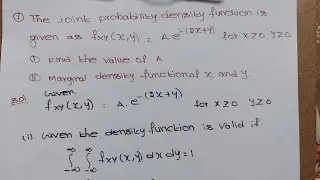 ① The joint probability density function is
given as fxy(x,y) = A.e^-(2x+y) for x≥0 y≥0
① Find the value of A
② Marginal density function of x and y
Sol Given
fxy(x,y) = A.e^-(2x+y) for x≥0 y≥0
(i) Given the density function is valid if
∫∞-∞ ∫∞-∞ fxy(x,y) dx dy = 1